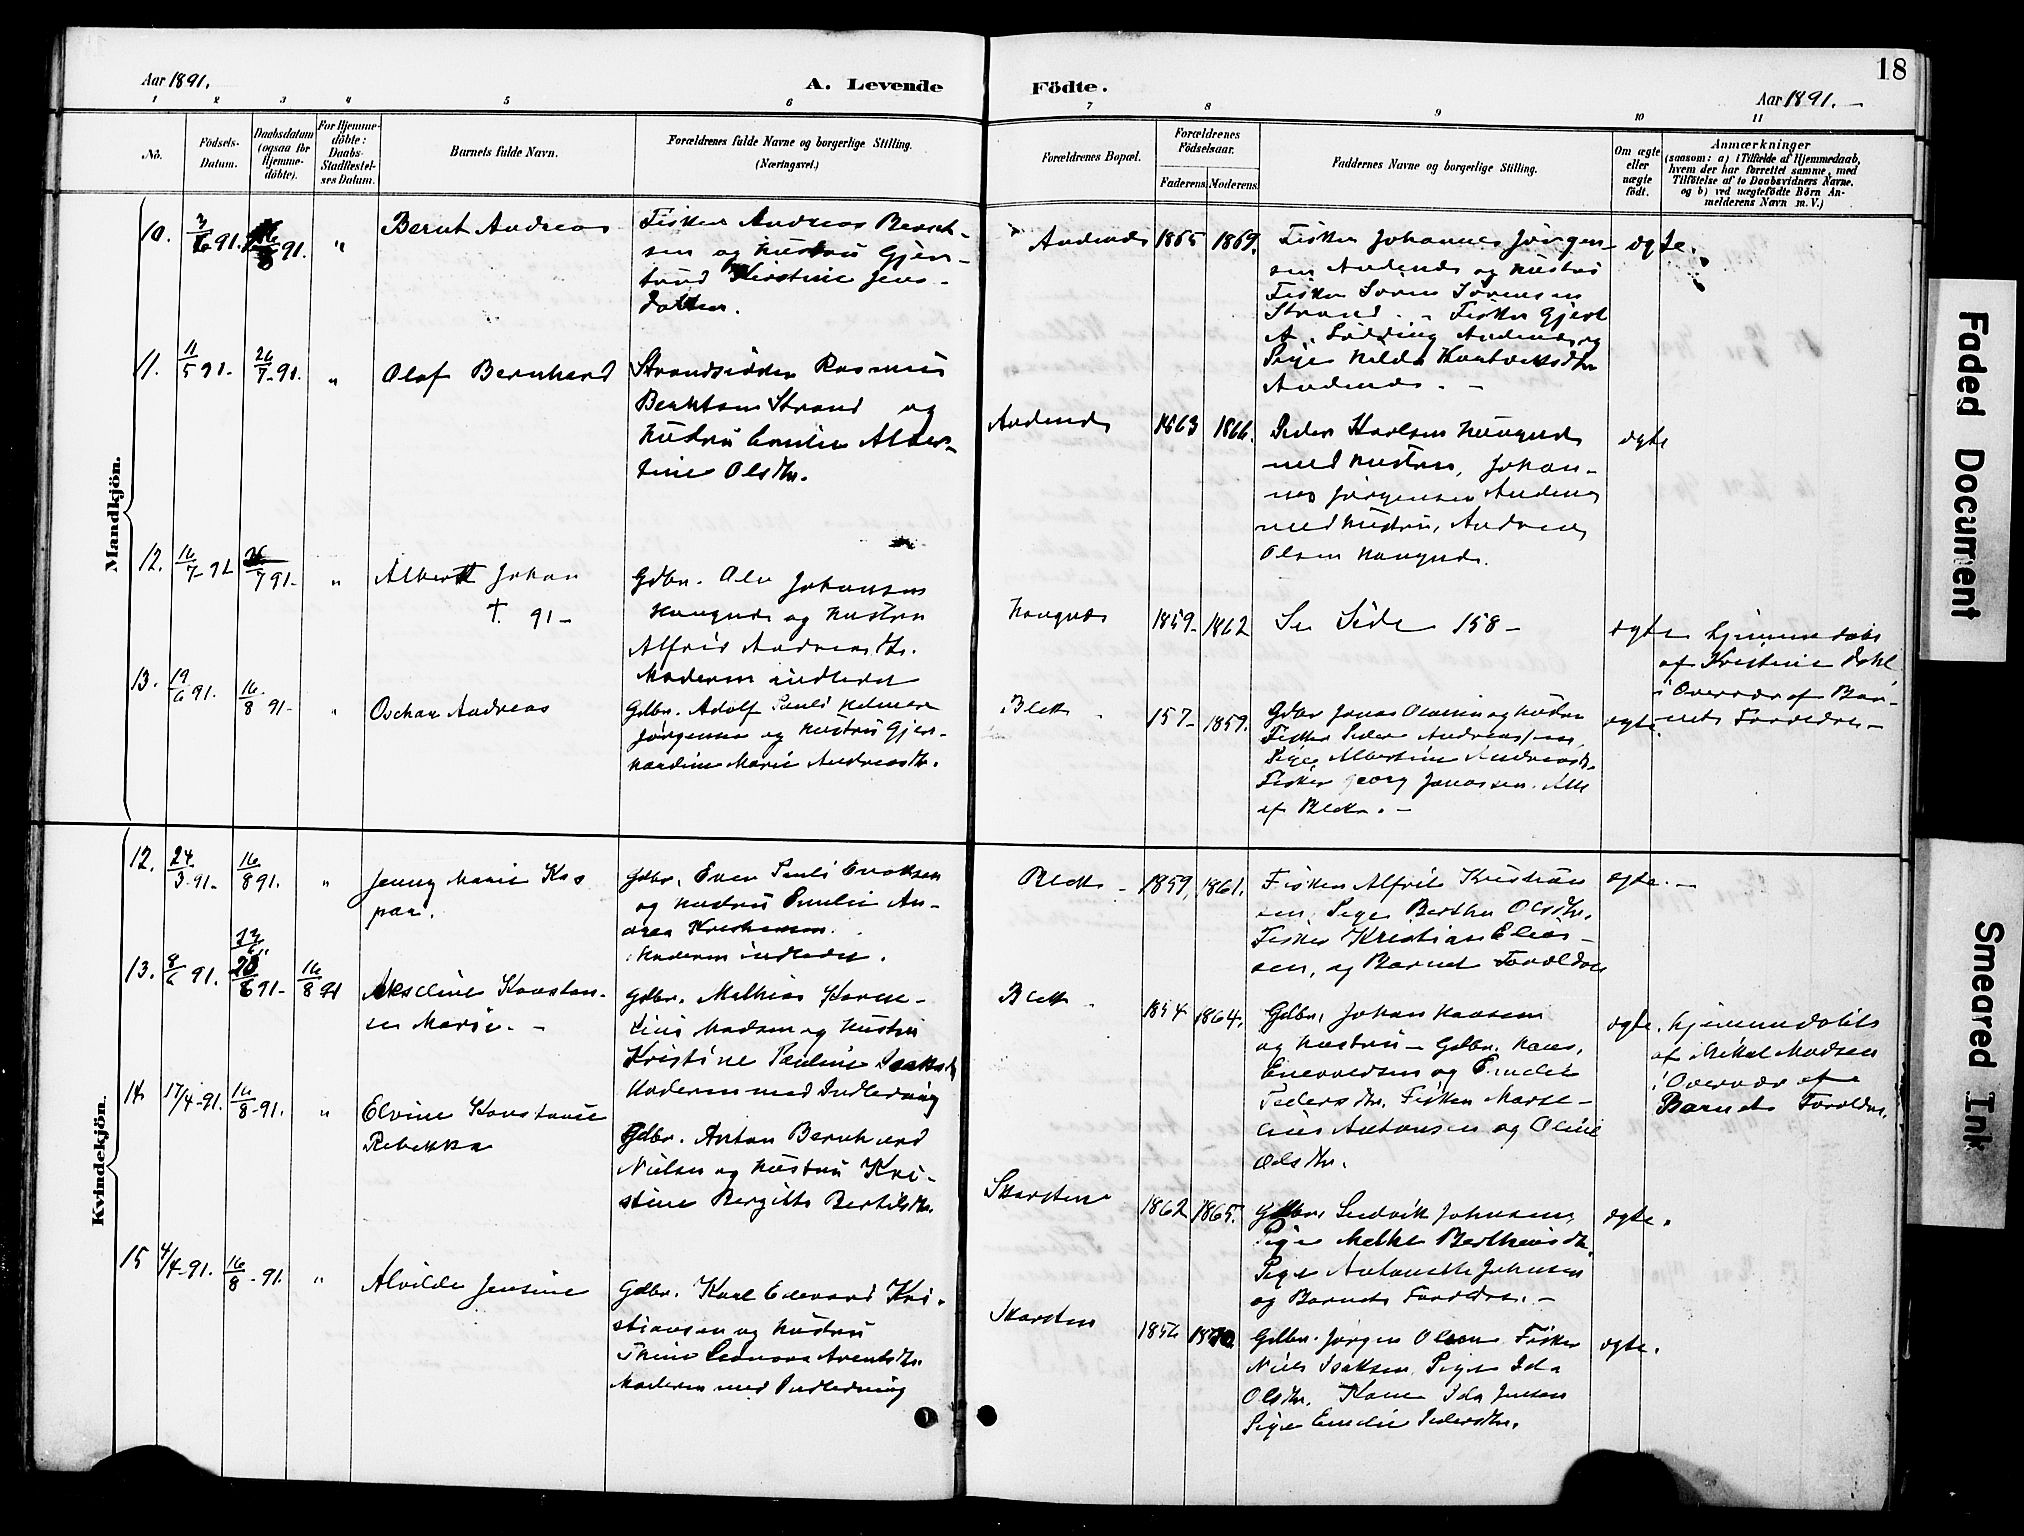 18
Aar 1891.
A. Levende
Födte.
Aar 1891.-
1 2 3 4 5 6 7 8 9 10 11
No.
Födsels-
Datum.
Daabsdatum
(ogsaa for
Hjemme-
döbte).
For Hjemme-
döbte:
Daabs-
Stadfæstel-
ses Datum.
Barnets fulde Navn.
Forældrenes fulde Navne og borgerlige Stilling.
(Næringsvei.)
Forældrenes Bopæl.
Forældrenes
Födselsaar.
Faderens.
Moderens.
Faddernes Navne og borgerlige Stilling.
Om ægte
eller
uægte
födt.
Anmærkninger
(saasom: a) i Tilfælde af Hjemmedaab,
hvem der har forrettet samme, med
Tilföielse af to Daabsvidners Navne.
og b) ved uægtefödte Börn An-
melderens Navn m. V.)
Mandkjön.
10.
91.
91.
"
Bernt Andreas
Fisker Andreas Bernt-
sen og Hustru Gjer-
trud Kirstine Jens-
datter.
Andenes
1865
1869.
Fisker Johannes Jörgen-
sen Andenes og Hustru
Fisker Sören Sörensen
Strand. - Fisker Gjert
A. Andenes og
Pige Hilda
Andenes. -
ægte.
11.
11/5 91-
26/7-91.
"
Olaf Bernhard
Strandsidder Rasmus
Berntsen Strand og
Hustru Emilie Alber-
tine Olsdtr.
Andenes
1863
1866.
Peder Karlsen Haugnes
med Hustru, Johan-
nes Jörgensen Andenes
med Hustru, Andreas
Olsen Haugnes.
ægte
12.
16/7-91
26/7 91-
"
Albert Johan
† 91-
Gdbr. Ole Johansen
Haugnes og Hustru
Alfrid Andreasdtr.
Moderen indledet
Haugnes
1859-
1862
Se Side 158-
ægte
hjemmedöbt
af Kristine Dahl
i Overvær af Bar-
nets Forældre-
13.
19/6 91.
16/8 91-
"
Oschar Andreas
Gdbr. Adolf Pauli Helmer
Jörgensen og Hustru Gjer-
hardine Marie Andreasdtr.
Bleik -
157-
1859.
Gdbr Jonas Olsen og Hustru
Fisker Peder Andreassen,
Pige Albertine Andreasdtr
Fisker Georg Jonassen. Alle
af Bleik. -
ægte.
Kvindekjön.
12.
24/3-91-
16/8 91.
"
Jenny Marie Kas
par.
Gdbr. Even Pauli Eriksen
og Hustru Emilie An-
drea Kristiansen.
Moderen indledet.
Bleik -
1859,
1861.
Fisker Alfred Kristian
sen, Pige Berthe Olsdtr.
Fisker Kristian Elias-
sen, og Barnet Forældre
ægte. -
13.
8/6 91.
91-
16/8 91
Akseline Konstan-
se Marie. -
Gdbr. Mathias Korne-
lius Madsen og Hustru
Kristine Pauline Isaksd
Moderen med Indledning
Bleik -
1854
1864.
Gdbr. Johan Hansen
og Hustru - Gdbr. Hans,
Enevoldsen og Emilie
Pedersdtr. Fisker Marse-
lius Antonsen og Oline
Olsdtr.
ægte.
hjemmedöbt
af Mikal Madsen
i Overvær af
Barnets Forældre.
14
17/4-91.
16/8-91.
"
Elvine Konstanse
Rebekka
Gdbr. Anton Bernhard
Nielsen og Hustru Kri-
stine Bergitte Bertelsdtr.
Skarsten
1862
1865.
Gdbr. Ludvik Johnsen,
Pige Melke Berthensdtr.
Pige Antonette Johnsen
og Barnets Forældre. -
ægte.
15
4/4-91.
16/8-91.
"
Alvilde Jensine
Gdbr. Karl Edevard Kri-
stiansen og Hustru
Trine Leonora Arentsdtr.
Moderen med Indledning
Skarsten
1856
1870.
Gdbr. Jörgen Olsen Fisker
Niels Isaksen, Pige Ida
Olsdtr. Kone Ida Jensen
Pige Emilie Pedersdtr.
ægte.
Faded Document
Smeared Ink